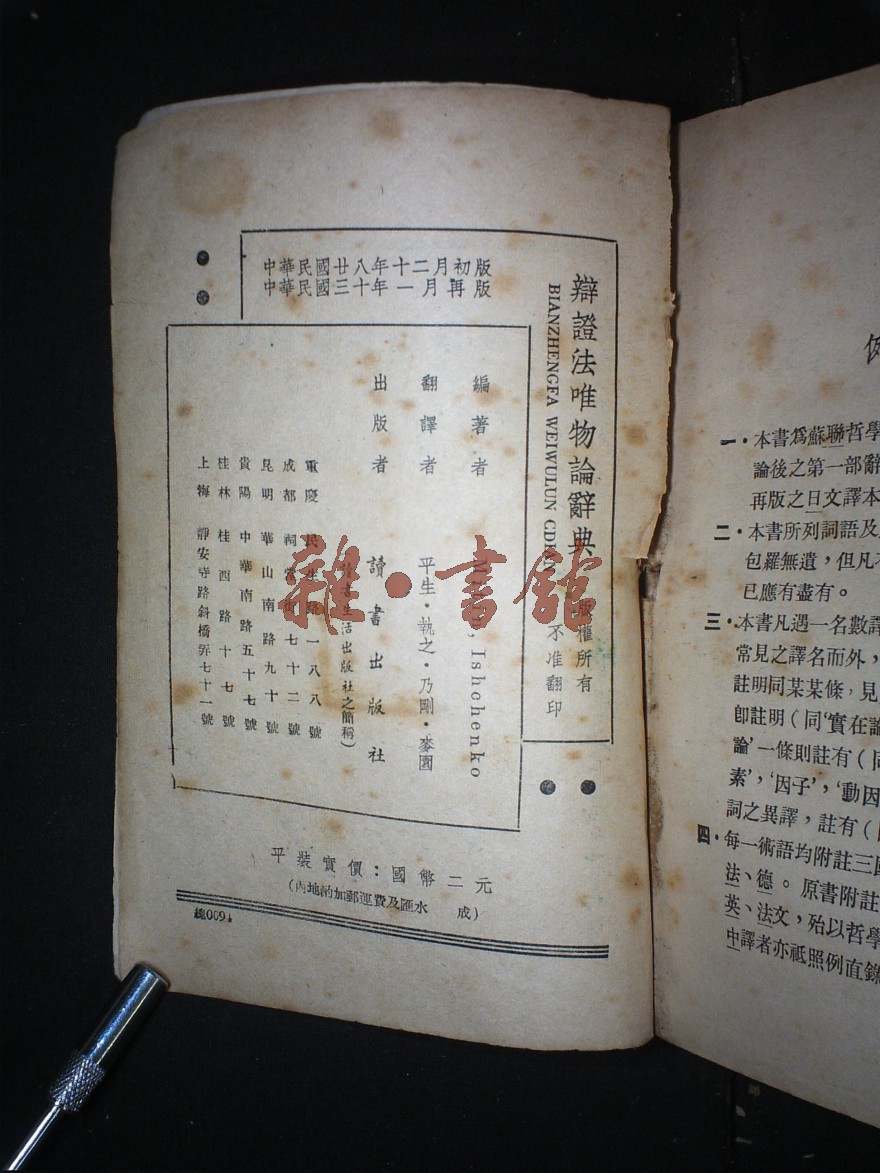 中華民國廿八年十二月初版
中華民國三十年一月再版
辯證法唯物論辭典
BIANZHENGFA WEIWULUN
版權所有
不准翻印
編著者
Ishchenko
翻譯者 平生・執之・乃剛・麥園
出版者 讀書出版社
生活出版社之簡稱)
重慶 民生路一八八號
成都 祠堂街七十二號
昆明 華山南路九十號
貴陽 中華南路五十七號
桂林 桂西路十七號
上海 靜安寺路斜橋弄七十一號
平裝實價：國幣二元
(內地酌加郵運費及匯水 成)
總0094
雜・書館
一・本書爲蘇聯哲學
論後之第一部辭
再版之日文譯本
二・本書所列詞語及
包羅無遺，但凡
已應有盡有。
三・本書凡遇一名數譯
常見之譯名而外，
註明同某某條，見
卽註明（同‘實在論
論’一條則註有（同
素’，‘因子’，‘動因
詞之異譯，註有（
四・每一術語均附註三國
法、德。原書附註
英、法文，殆以哲學
中譯者亦祗照例直錄